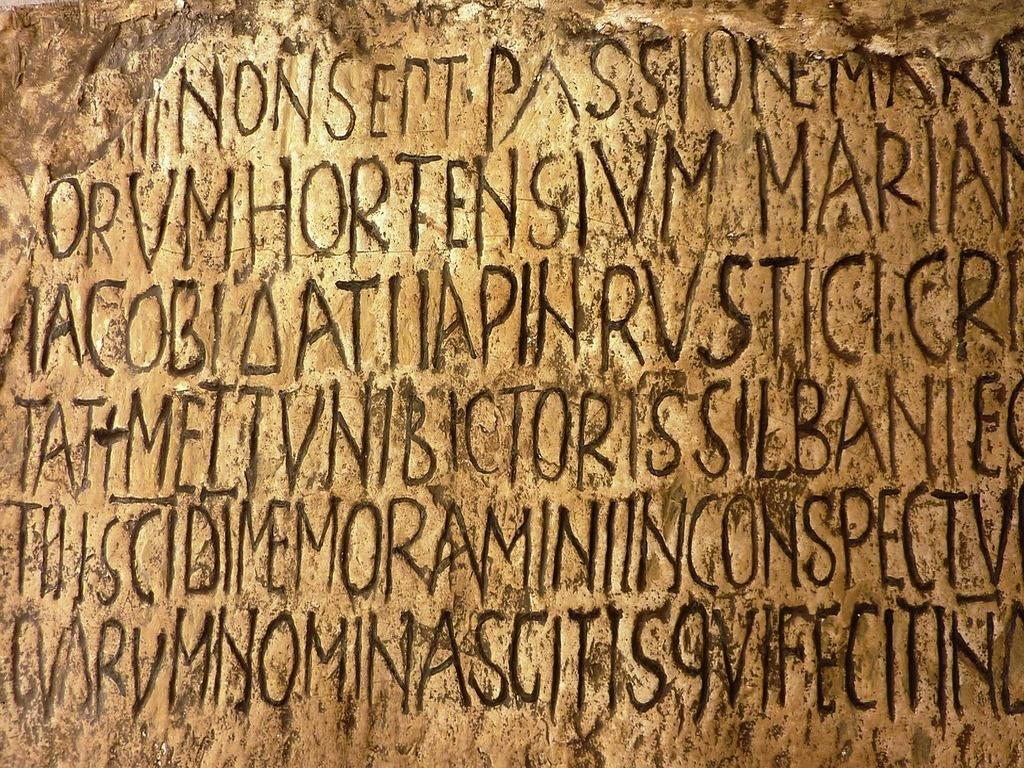 III NON SEPT · PASSIONE MART
ORVM HORTENSIVM MARIAN
IACOBI DATI IAPIN RVSTICI CRI
TATI METTVNI BICTORIS SILBANI EG
TII IS CI DI MEMORAMINI IN CONSPECTV
QVARVM NOMINA SCITIS QVI FECIT IN D